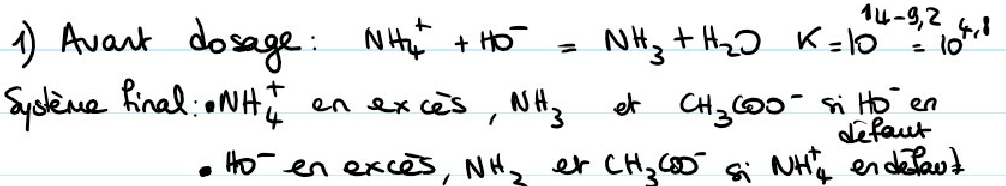 1) Avant dosage : NH₄⁺ + HO⁻ = NH₃ + H₂O K = 10^14-9,2 = 10^4,8
Système final : • NH₄⁺ en excès, NH₃ et CH₃COO⁻ si HO⁻ en défaut
• HO⁻ en excès, NH₃ et CH₃COO⁻ si NH₄⁺ en défaut